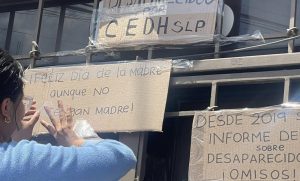 DESAPARECIDO
CEDH SLP
¡FELIZ DÍA DE LA MADRE
AUNQUE NO
MADRE!
DESDE 2019 S
INFORME DE
SOBRE
DESAPARECIDO
¡OMISOS!